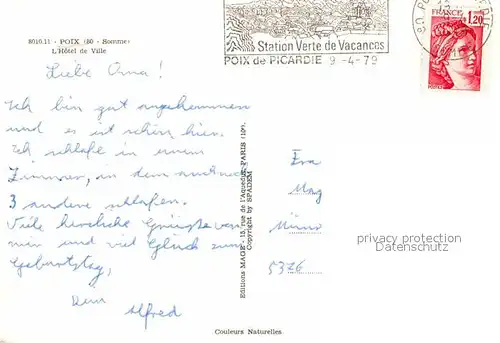 8010.11 - POIX (80 - Somme)
L'Hôtel de Ville
Station Verte de Vacances
POIX de PICARDIE 9-4-79
FRANCE
1,20
Liebe Oma!
Ich bin gut angekommen
und es ist schön hier.
Ich schlafe in einem
Zimmer, in dem auch noch
3 andere schlafen.
Viele herzliche Grüsse von
mir und viel Glück zum
Geburtstag,
Dein
Alfred
Editions MAGE - 15, rue de l'Aqueduc, PARIS (10e).
Copyright by SPADEM
Mag
5376
privacy protection
Datenschutz
Couleurs Naturelles.